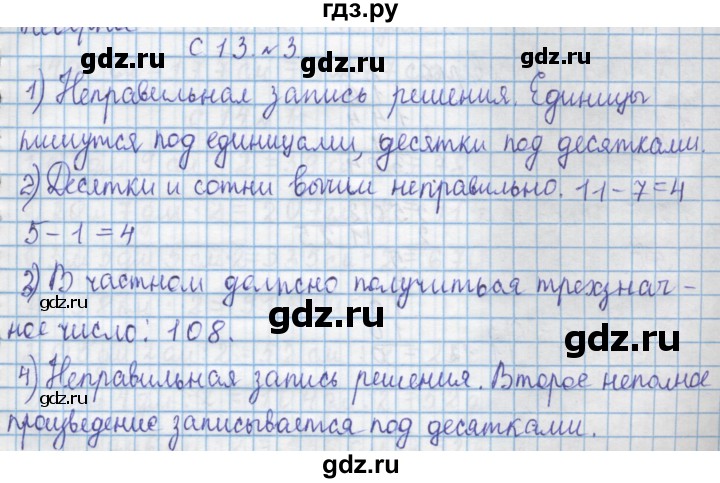 гдз.ру
С 13 №3
1) Неправильная запись решения. Единицы
пишутся под единицами, десятки под десятками.
2) Десятки и сотни вычли неправильно. 11-7=4
5-1=4
3) В частном должно получиться трехзнач-
ное число: 108.
4) Неправильная запись решения. Второе неполное
произведение записывается под десятками.
gdz.ru
gdz.ru
gdz.ru
gdz.ru
gdz.ru
gdz.ru
gdz.ru
gdz.ru
gdz.ru
gdz.ru
gdz.ru
gdz.ru